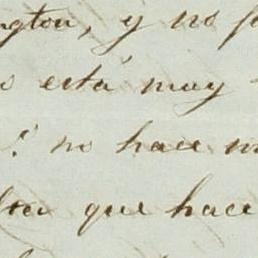 ngton, y no
está muy
no hace
que hace